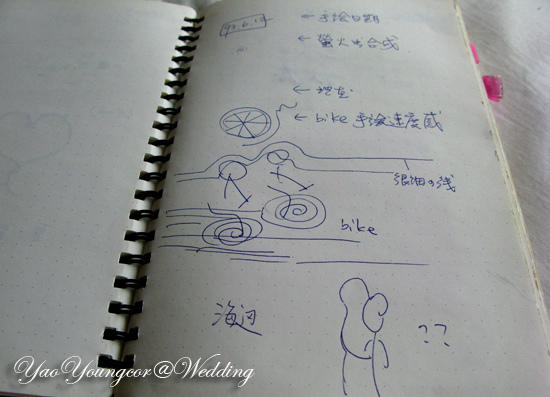 ← 手绘日期
← 萤火虫合成
← bike 手绘速度感
很细の线
bike
海河
??
YaoYoungcor@Wedding